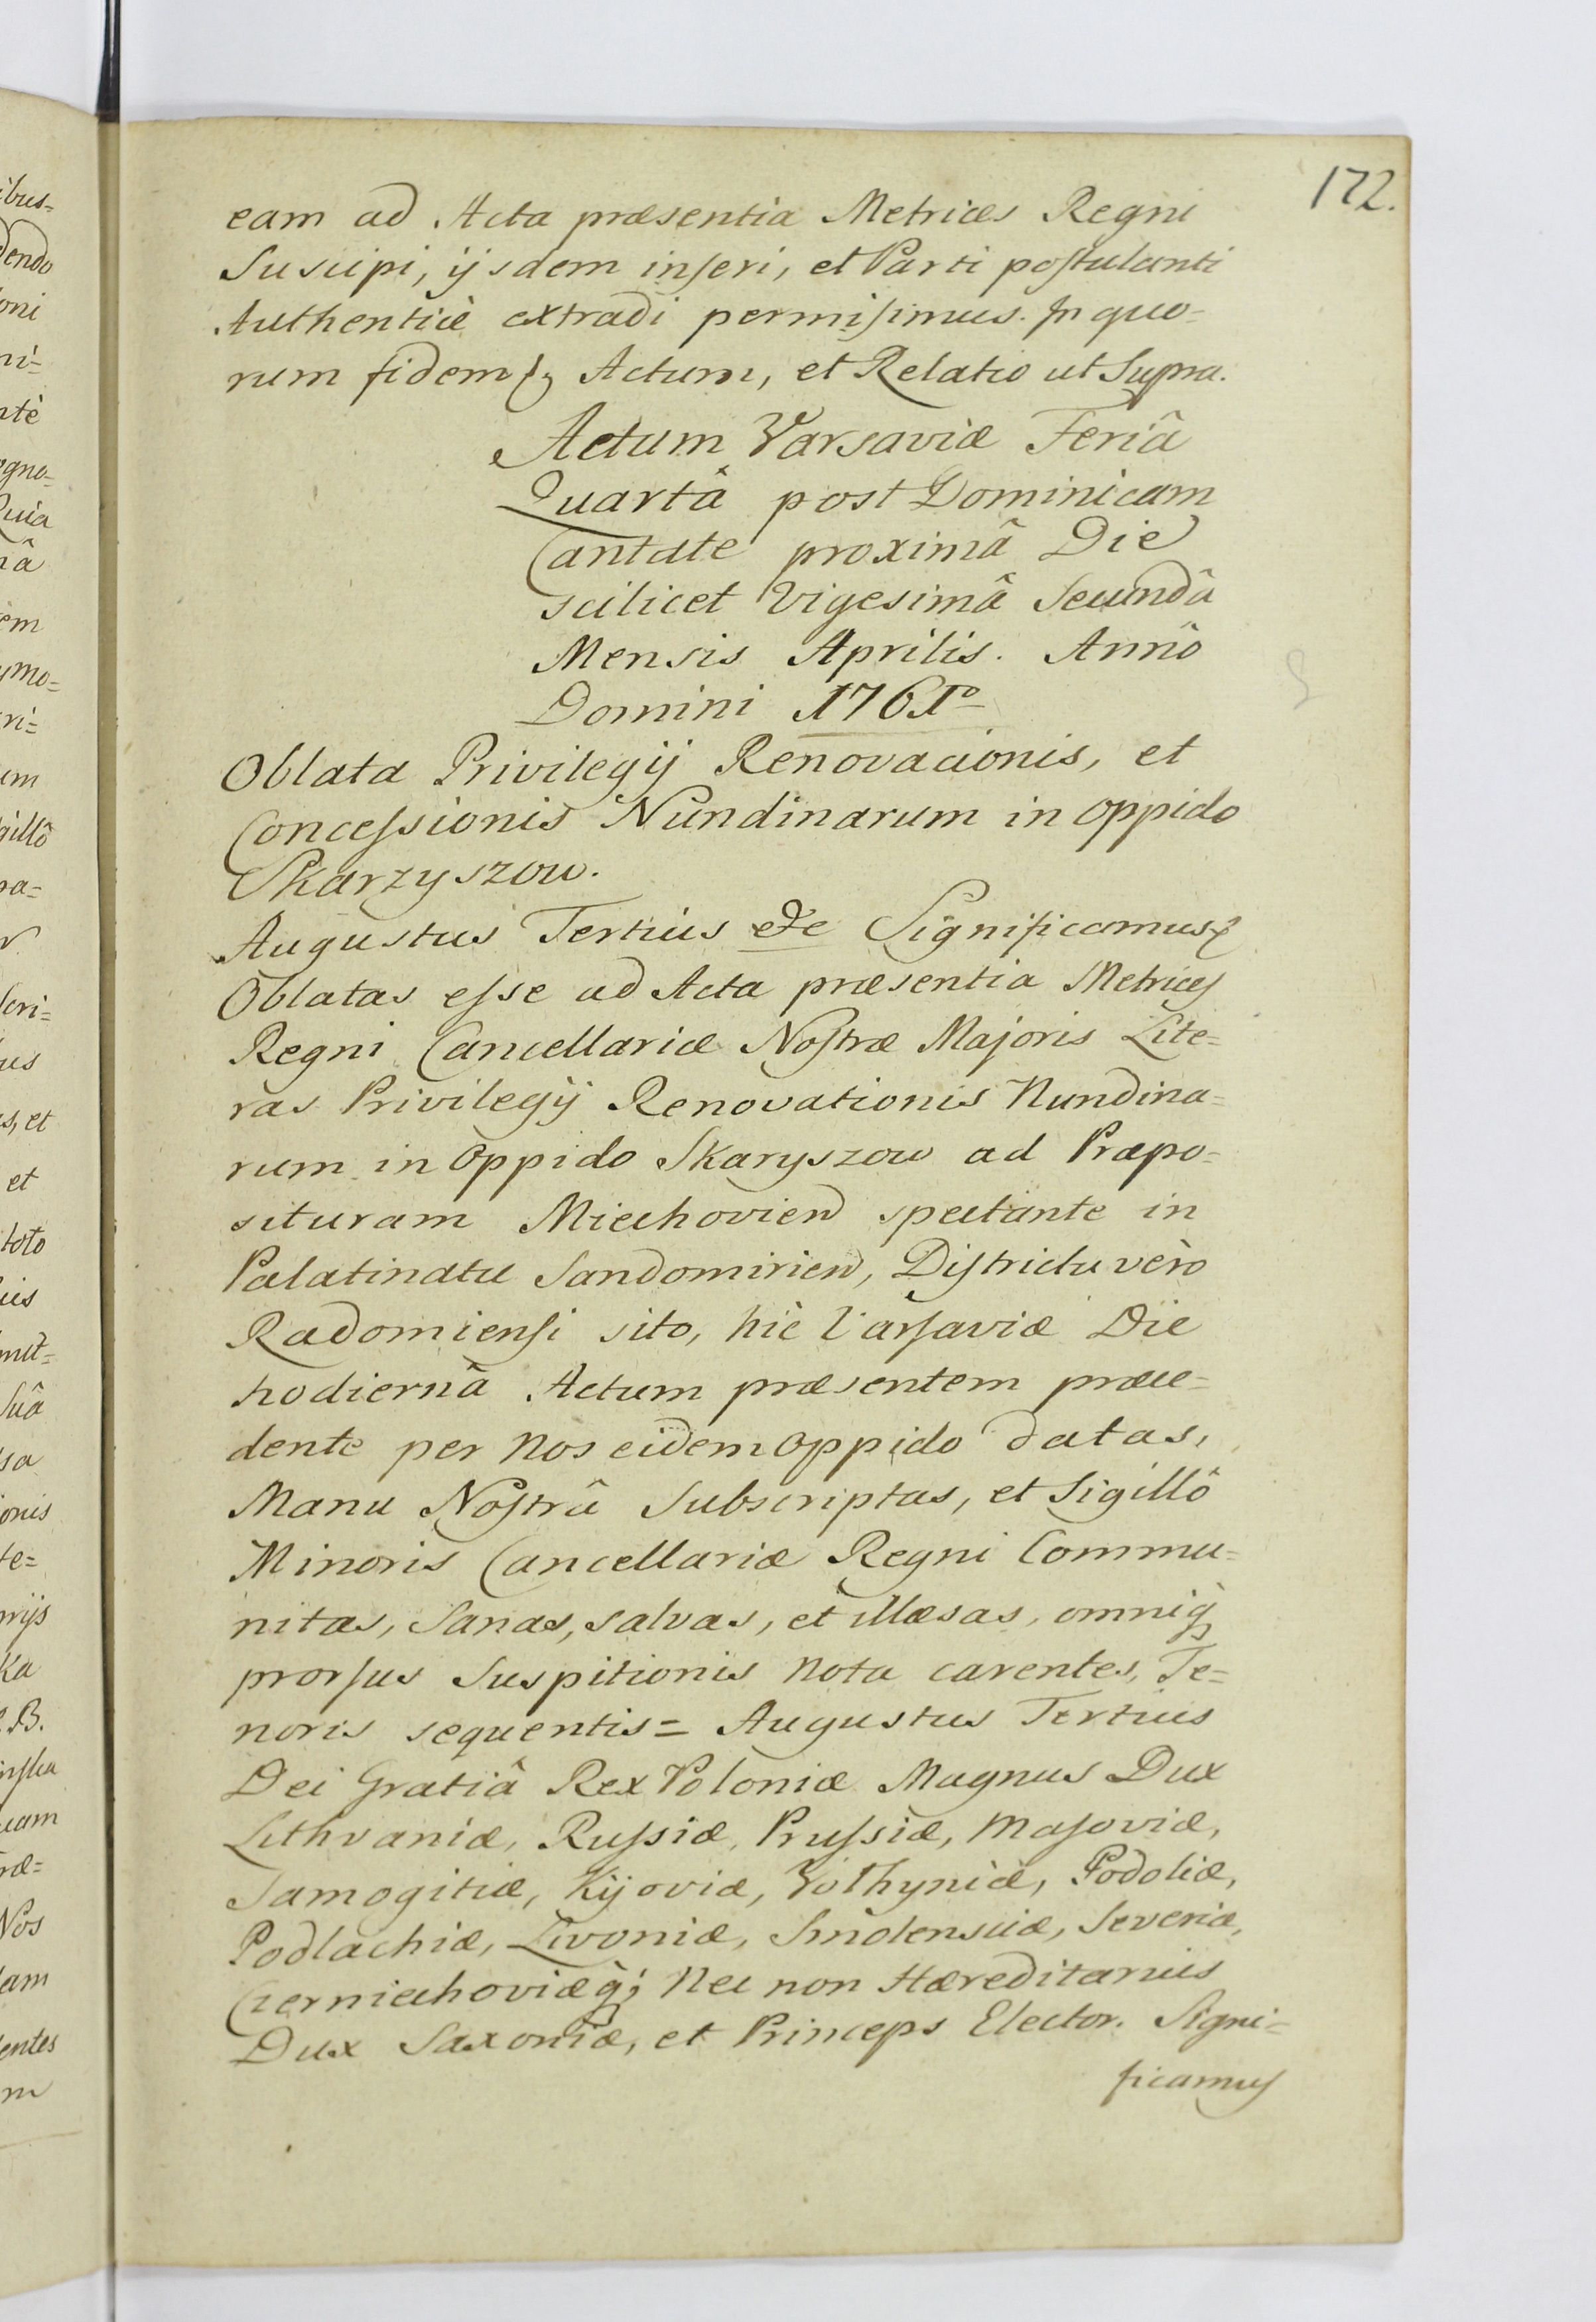 172.
eam ad Acta præsentia Metrices Regni
Suscipi, ijsdem inseri, et Parti postulanti
Authenticè extradi permisimus. In quo=
rum fidem Actum, et Relatio ut Supra.
Actum Varsaviæ Feriâ
Quartâ post Dominicam
Cantate proximâ Die
scilicet Vigesimâ Secundâ
Mensis Aprilis. Annô
Domini 1761º
Oblata Privilegij Renovacionis, et
Concessionis Nundinarum in Oppido
Skarzyszow.
Augustus Tertius etc Significamus
Oblatas esse ad Acta præsentia Metrices
Regni Cancellariæ Nostræ Majoris Lite=
ras Privilegij Renovationis Nundina=
rum in Oppido Skaryszow ad Præpo=
situram Miechovien spectante in
Palatinatu Sandomirien, Districtu verò
Radomiensi sito, hic Varsaviæ Die
hodiernâ Actum præsentem præce=
dente per Nos eidem Oppido datas,
Manu Nostrâ Subscriptas, et Sigillô
Minoris Cancellariæ Regni Commu=
nitas, Sanas, salvas, et illæsas, omniq;
prorsus Suspitionis Nota carentes, Te=
noris sequentis= Augustus Tertius
Dei Gratiâ Rex Poloniæ Magnus Dux
Lithvaniæ, Russiæ, Prussiæ, Masoviæ,
Samogitiæ, Kijoviæ, Volhyniæ, Podoliæ,
Podlachiæ, Livoniæ, Smolensciæ, Severiæ,
Czerniechoviæq; Nec non Hæreditarius
Dux Saxoniæ, et Princeps Elector. Signi=
ficamus